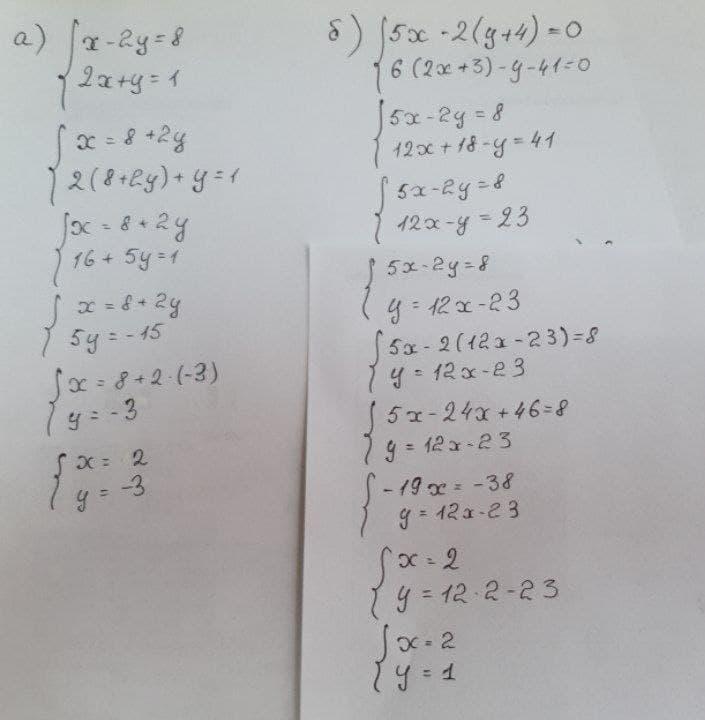 а) { x - 2y = 8
2x + y = 1
{ x = 8 + 2y
2(8+2y) + y = 1
{ x = 8 + 2y
16 + 5y = 1
{ x = 8 + 2y
5y = -15
{ x = 8 + 2·(-3)
y = -3
{ x = 2
y = -3
б) { 5x - 2(y+4) = 0
6(2x+3) - y - 41 = 0
{ 5x - 2y = 8
12x + 18 - y = 41
{ 5x - 2y = 8
12x - y = 23
{ 5x - 2y = 8
y = 12x - 23
{ 5x - 2(12x - 23) = 8
y = 12x - 23
{ 5x - 24x + 46 = 8
y = 12x - 23
{ -19x = -38
y = 12x - 23
{ x = 2
y = 12·2 - 23
{ x = 2
y = 1